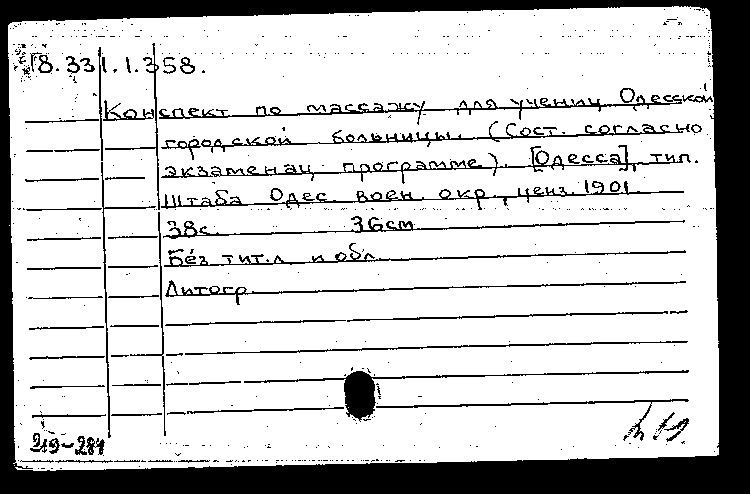 18.331.1.358.
Конспект по массажу для учениц Одесской
городской больницы. (Сост. согласно
экзаменац. программе). [Одесса], тип.
Штаба Одес. воен. окр., ценз. 1901.
38с. 36см
Без тит.л. и обл.
Литогр.
219-284